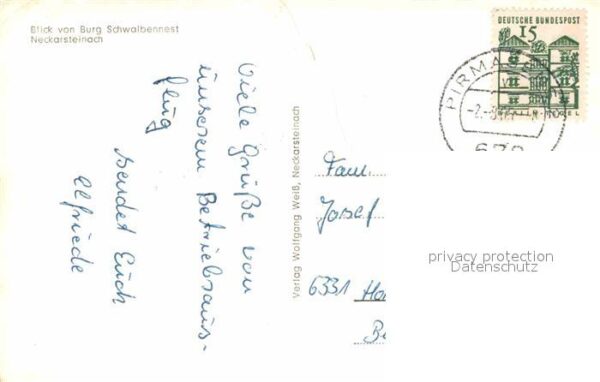 Blick von Burg Schwalbennest
Neckarsteinach
Viele Grüße von
unserem Betriebsaus-
flug
sendet Euch
Elfriede
Verlag Wolfgang Weiß, Neckarsteinach
DEUTSCHE BUNDESPOST
15
PIRMAS
Fam.
Josef
6331
privacy protection
Datenschutz